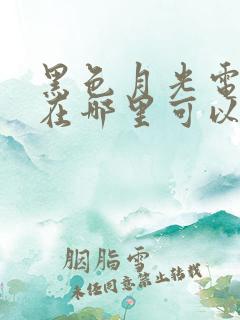 黑色月光電
在哪里可以
胭脂雪
未经同意禁止转载